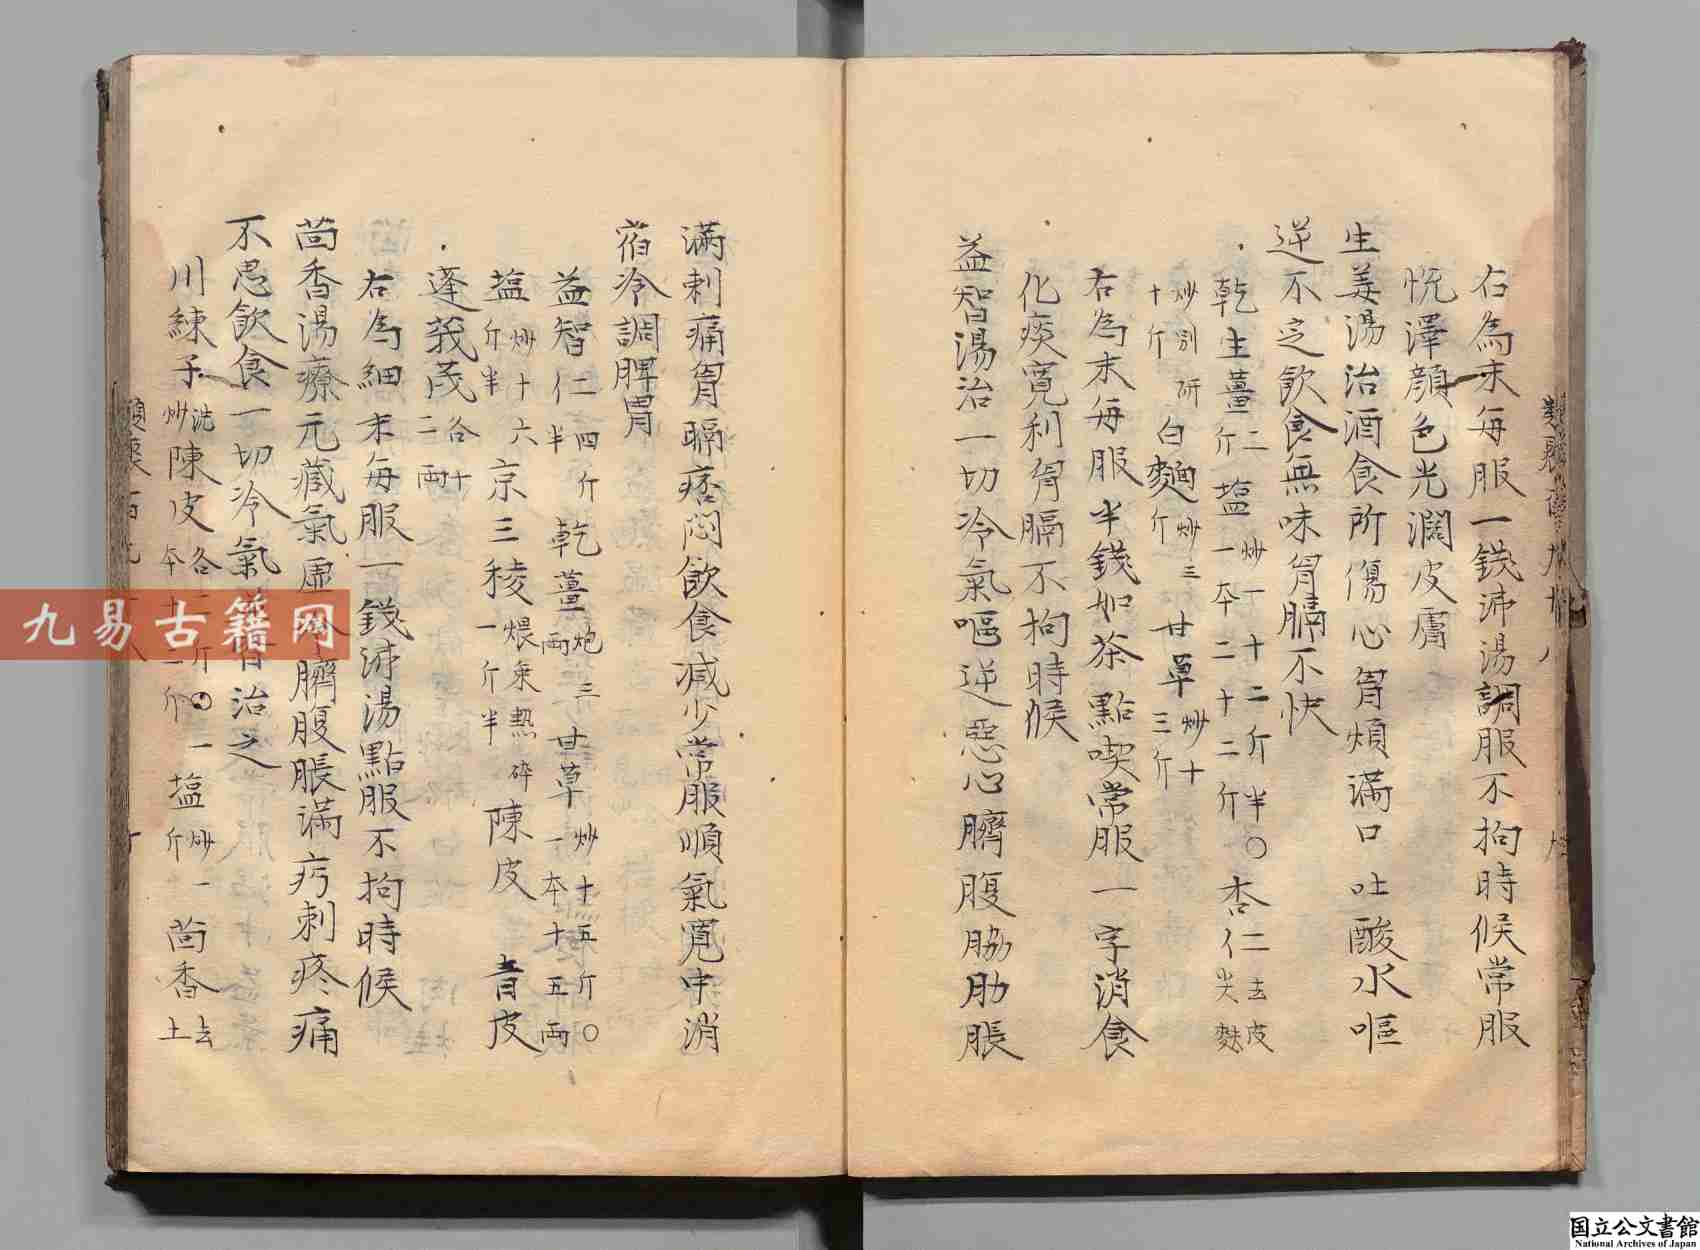 右為末每服一錢沸湯調服不拘時候常服
悅澤顏色光潤皮膚
生姜湯治酒食所傷心胷煩滿口吐酸水嘔
逆不定飲食無味胷膈不快
乾生薑二斤 塩一夲二十二斤炒一十二斤半〇 杏仁二去皮尖麩
炒別研十斤 白麵炒三斤 甘草炒十三斤
右為末每服半錢如茶點喫常服一字消食
化痰寬利胷膈不拘時候
益智湯治一切冷氣嘔逆惡心臍腹脇肋脹
滿刺痛胷膈痞悶飲食減少常服順氣寬中消
宿冷調脾胃
益智仁二四斤半 乾薑炮三兩 甘草炒十五斤〇一夲十五兩
塩炒十六斤半 京三稜煨乘熱碎一斤半 陳皮 青皮
蓬莪茂各十二兩
右為細末每服一錢沸湯點服不拘時候
茴香湯療元藏氣虛 臍腹脹滿疞刺疼痛
不思飲食一切冷氣 治之
川練子洗炒 陳皮各二斤〇一夲十一斤 塩炒一斤 茴香去土
九易古籍网
国立公文書館
National Archives of Japan